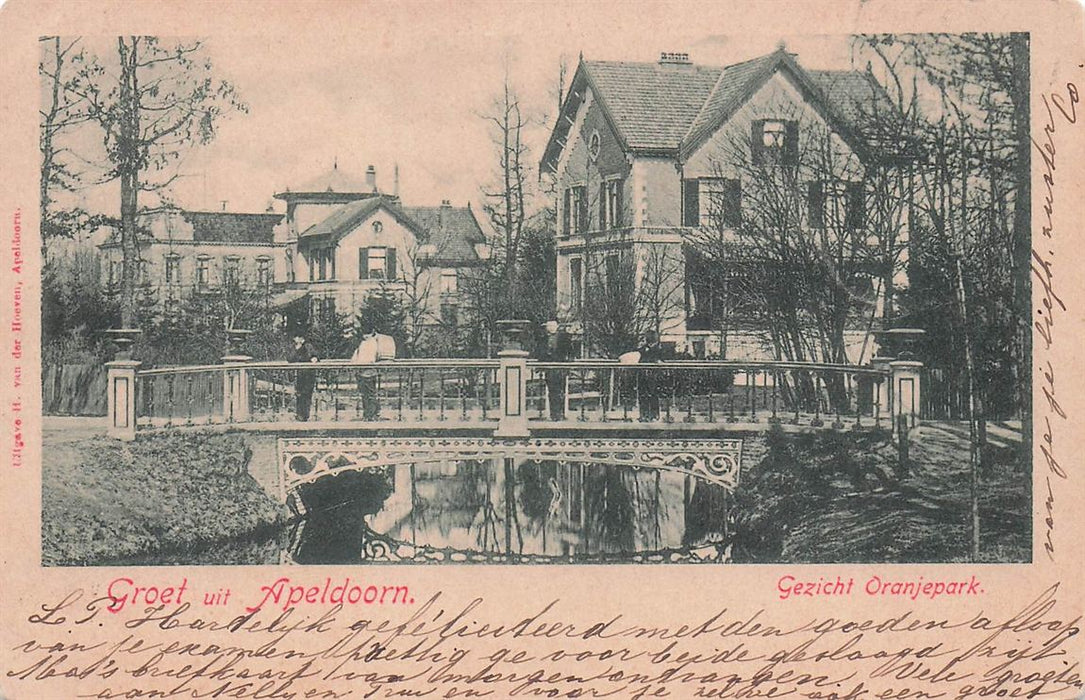 Uitgave H. van der Hoeven, Apeldoorn.
Groet uit Apeldoorn.
Gezicht Oranjepark.
L. T. Hardelijk gefeliciteerd met den goeden afloop
van je examen prettig ge voor beide geslaagd zijt
Ma's briefkaart van morgen ontvangen. Vele groeten
aan Nelly en Truu en voor je zelve ook een
van je je liefh. zuster Co